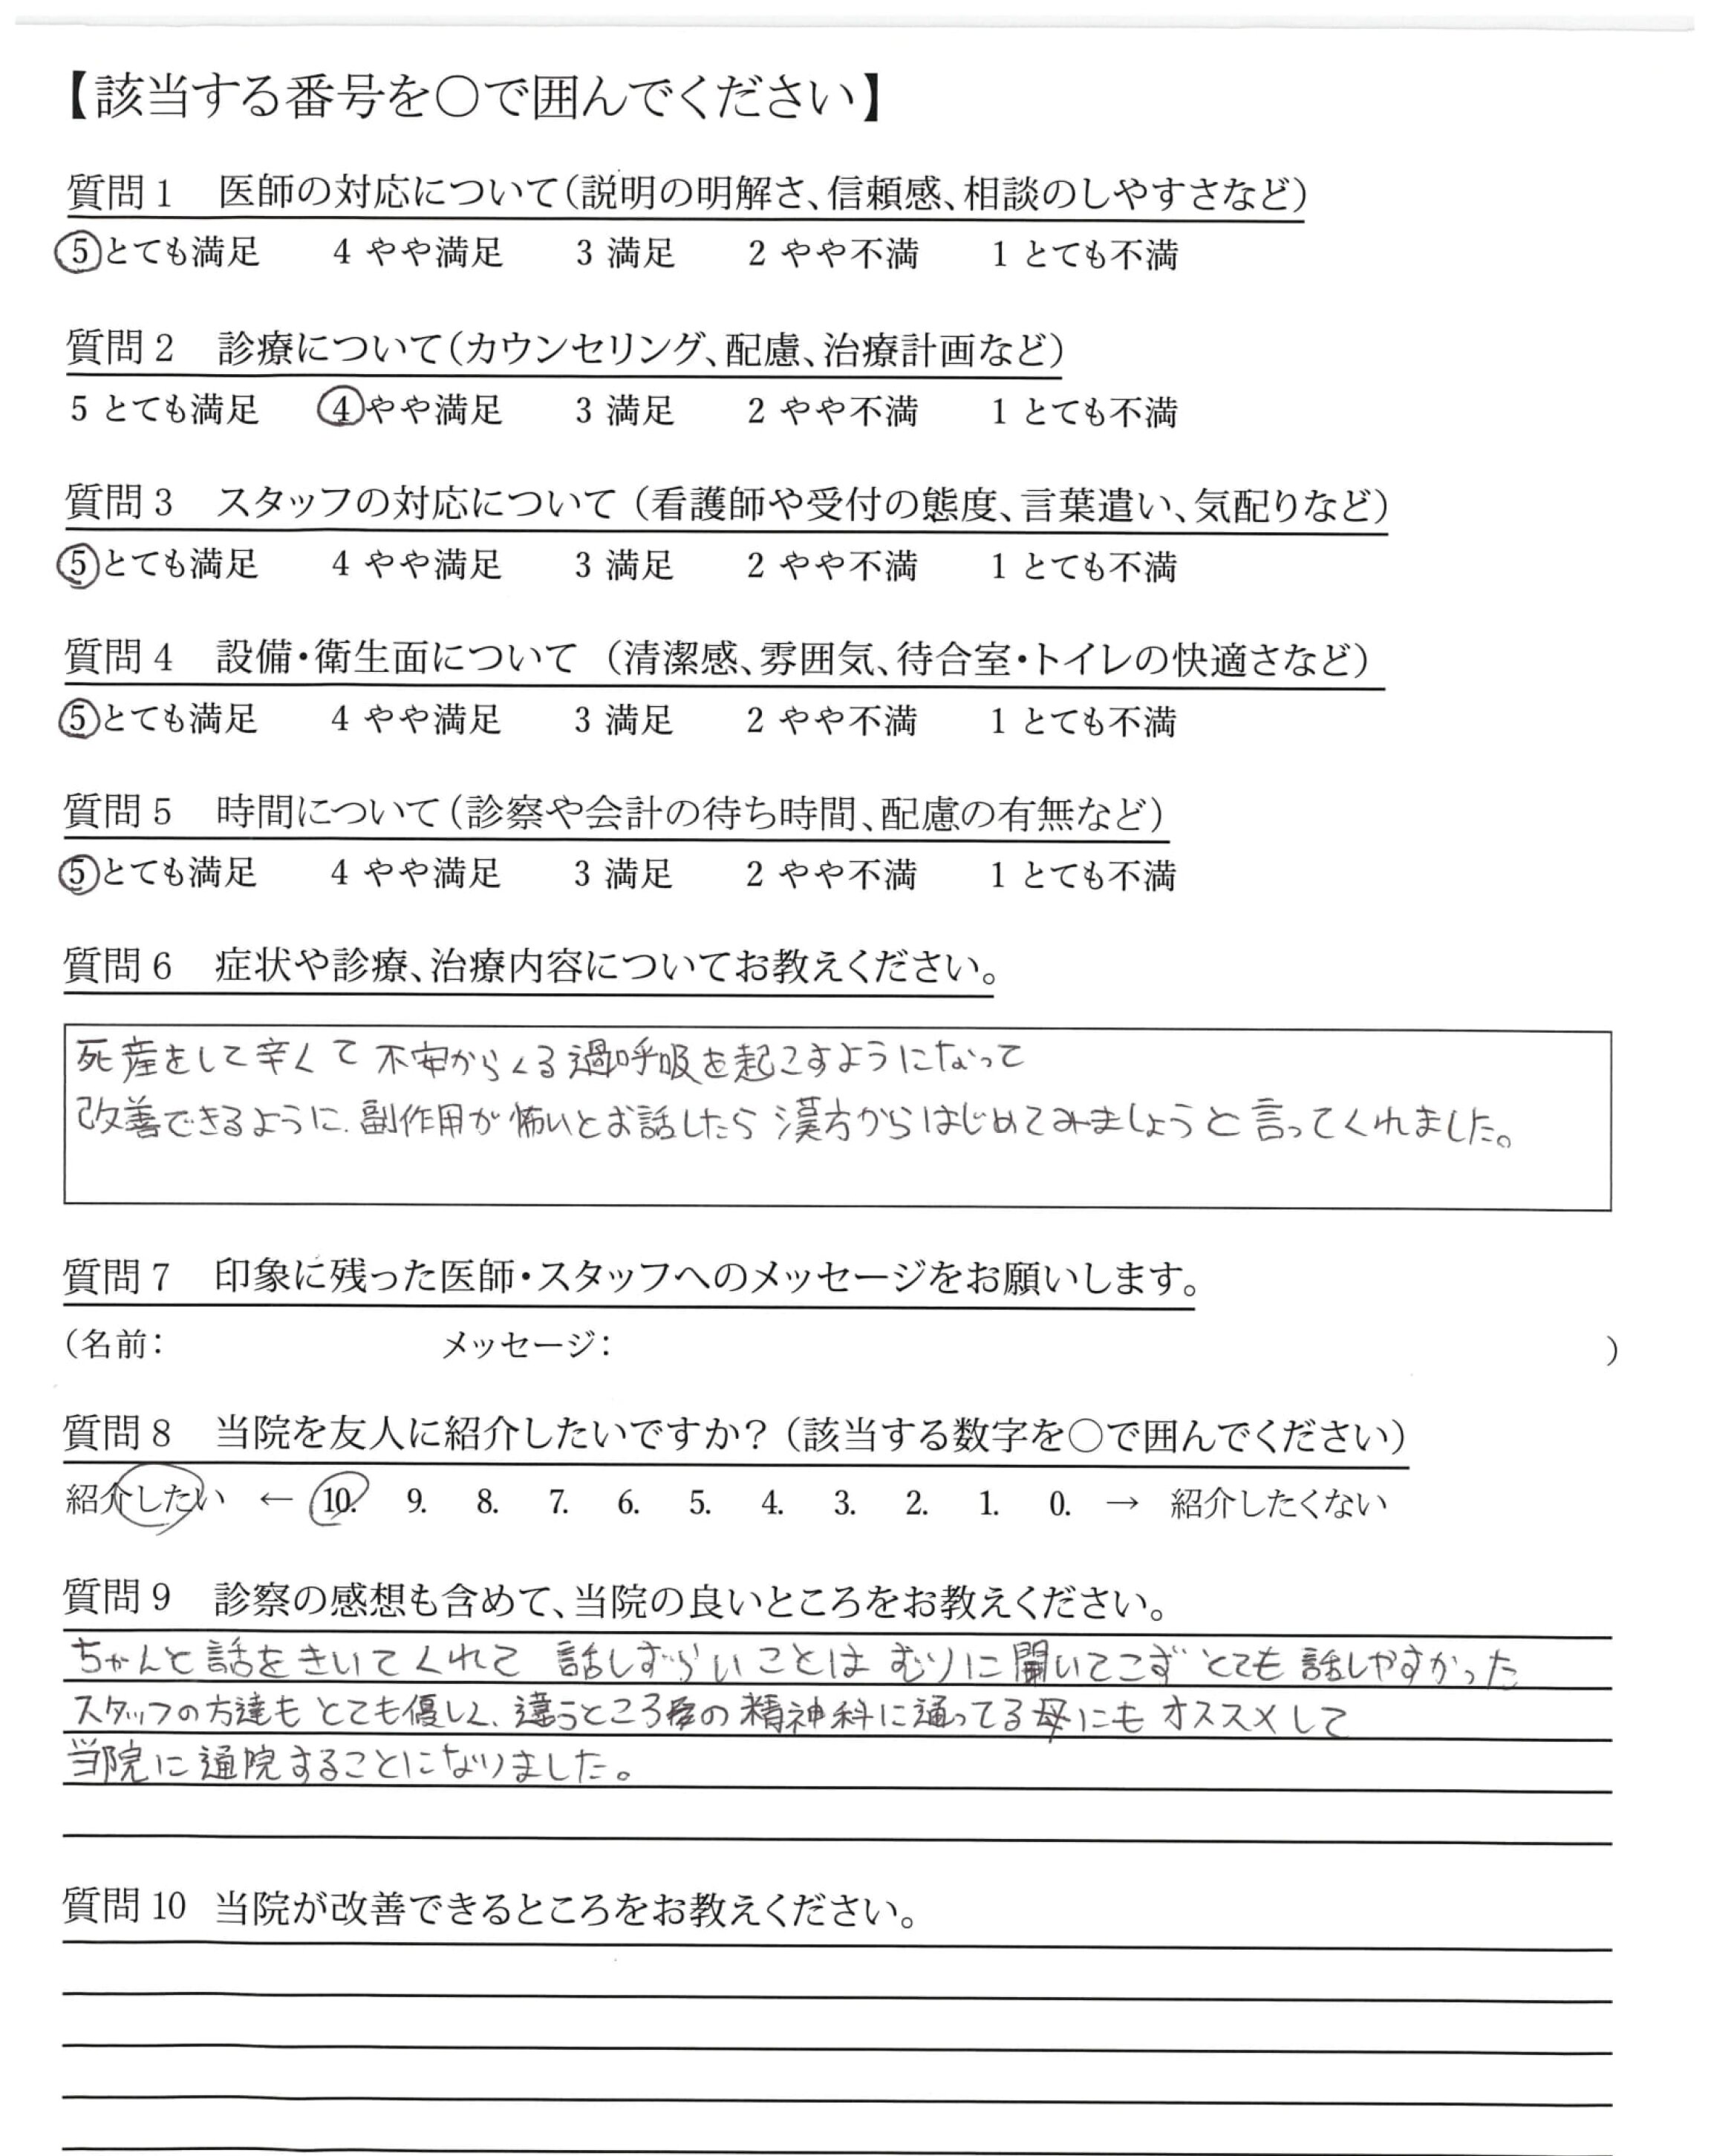 【該当する番号を○で囲んでください】
質問1 医師の対応について(説明の明解さ、信頼感、相談のしやすさなど)
5 とても満足 4 やや満足 3 満足 2 やや不満 1 とても不満
質問2 診療について(カウンセリング、配慮、治療計画など)
5 とても満足 4 やや満足 3 満足 2 やや不満 1 とても不満
質問3 スタッフの対応について(看護師や受付の態度、言葉遣い、気配りなど)
5 とても満足 4 やや満足 3 満足 2 やや不満 1 とても不満
質問4 設備・衛生面について(清潔感、雰囲気、待合室・トイレの快適さなど)
5 とても満足 4 やや満足 3 満足 2 やや不満 1 とても不満
質問5 時間について(診察や会計の待ち時間、配慮の有無など)
5 とても満足 4 やや満足 3 満足 2 やや不満 1 とても不満
質問6 症状や診療、治療内容についてお教えください。
死産をして辛くて 不安からくる過呼吸を起こすようになって
改善できるように、副作用が怖いとお話したら 漢方からはじめてみましょうと言ってくれました。
質問7 印象に残った医師・スタッフへのメッセージをお願いします。
(名前: メッセージ: )
質問8 当院を友人に紹介したいですか?(該当する数字を○で囲んでください)
紹介したい ← 10. 9. 8. 7. 6. 5. 4. 3. 2. 1. 0. → 紹介したくない
質問9 診察の感想も含めて、当院の良いところをお教えください。
ちゃんと話をきいてくれて 話しずらいことは むりに聞いてこず とても話しやすかった
スタッフの方達も とても優しく、違うところの精神科に通ってる母にも オススメして
当院に通院することになりました。
質問10 当院が改善できるところをお教えください。